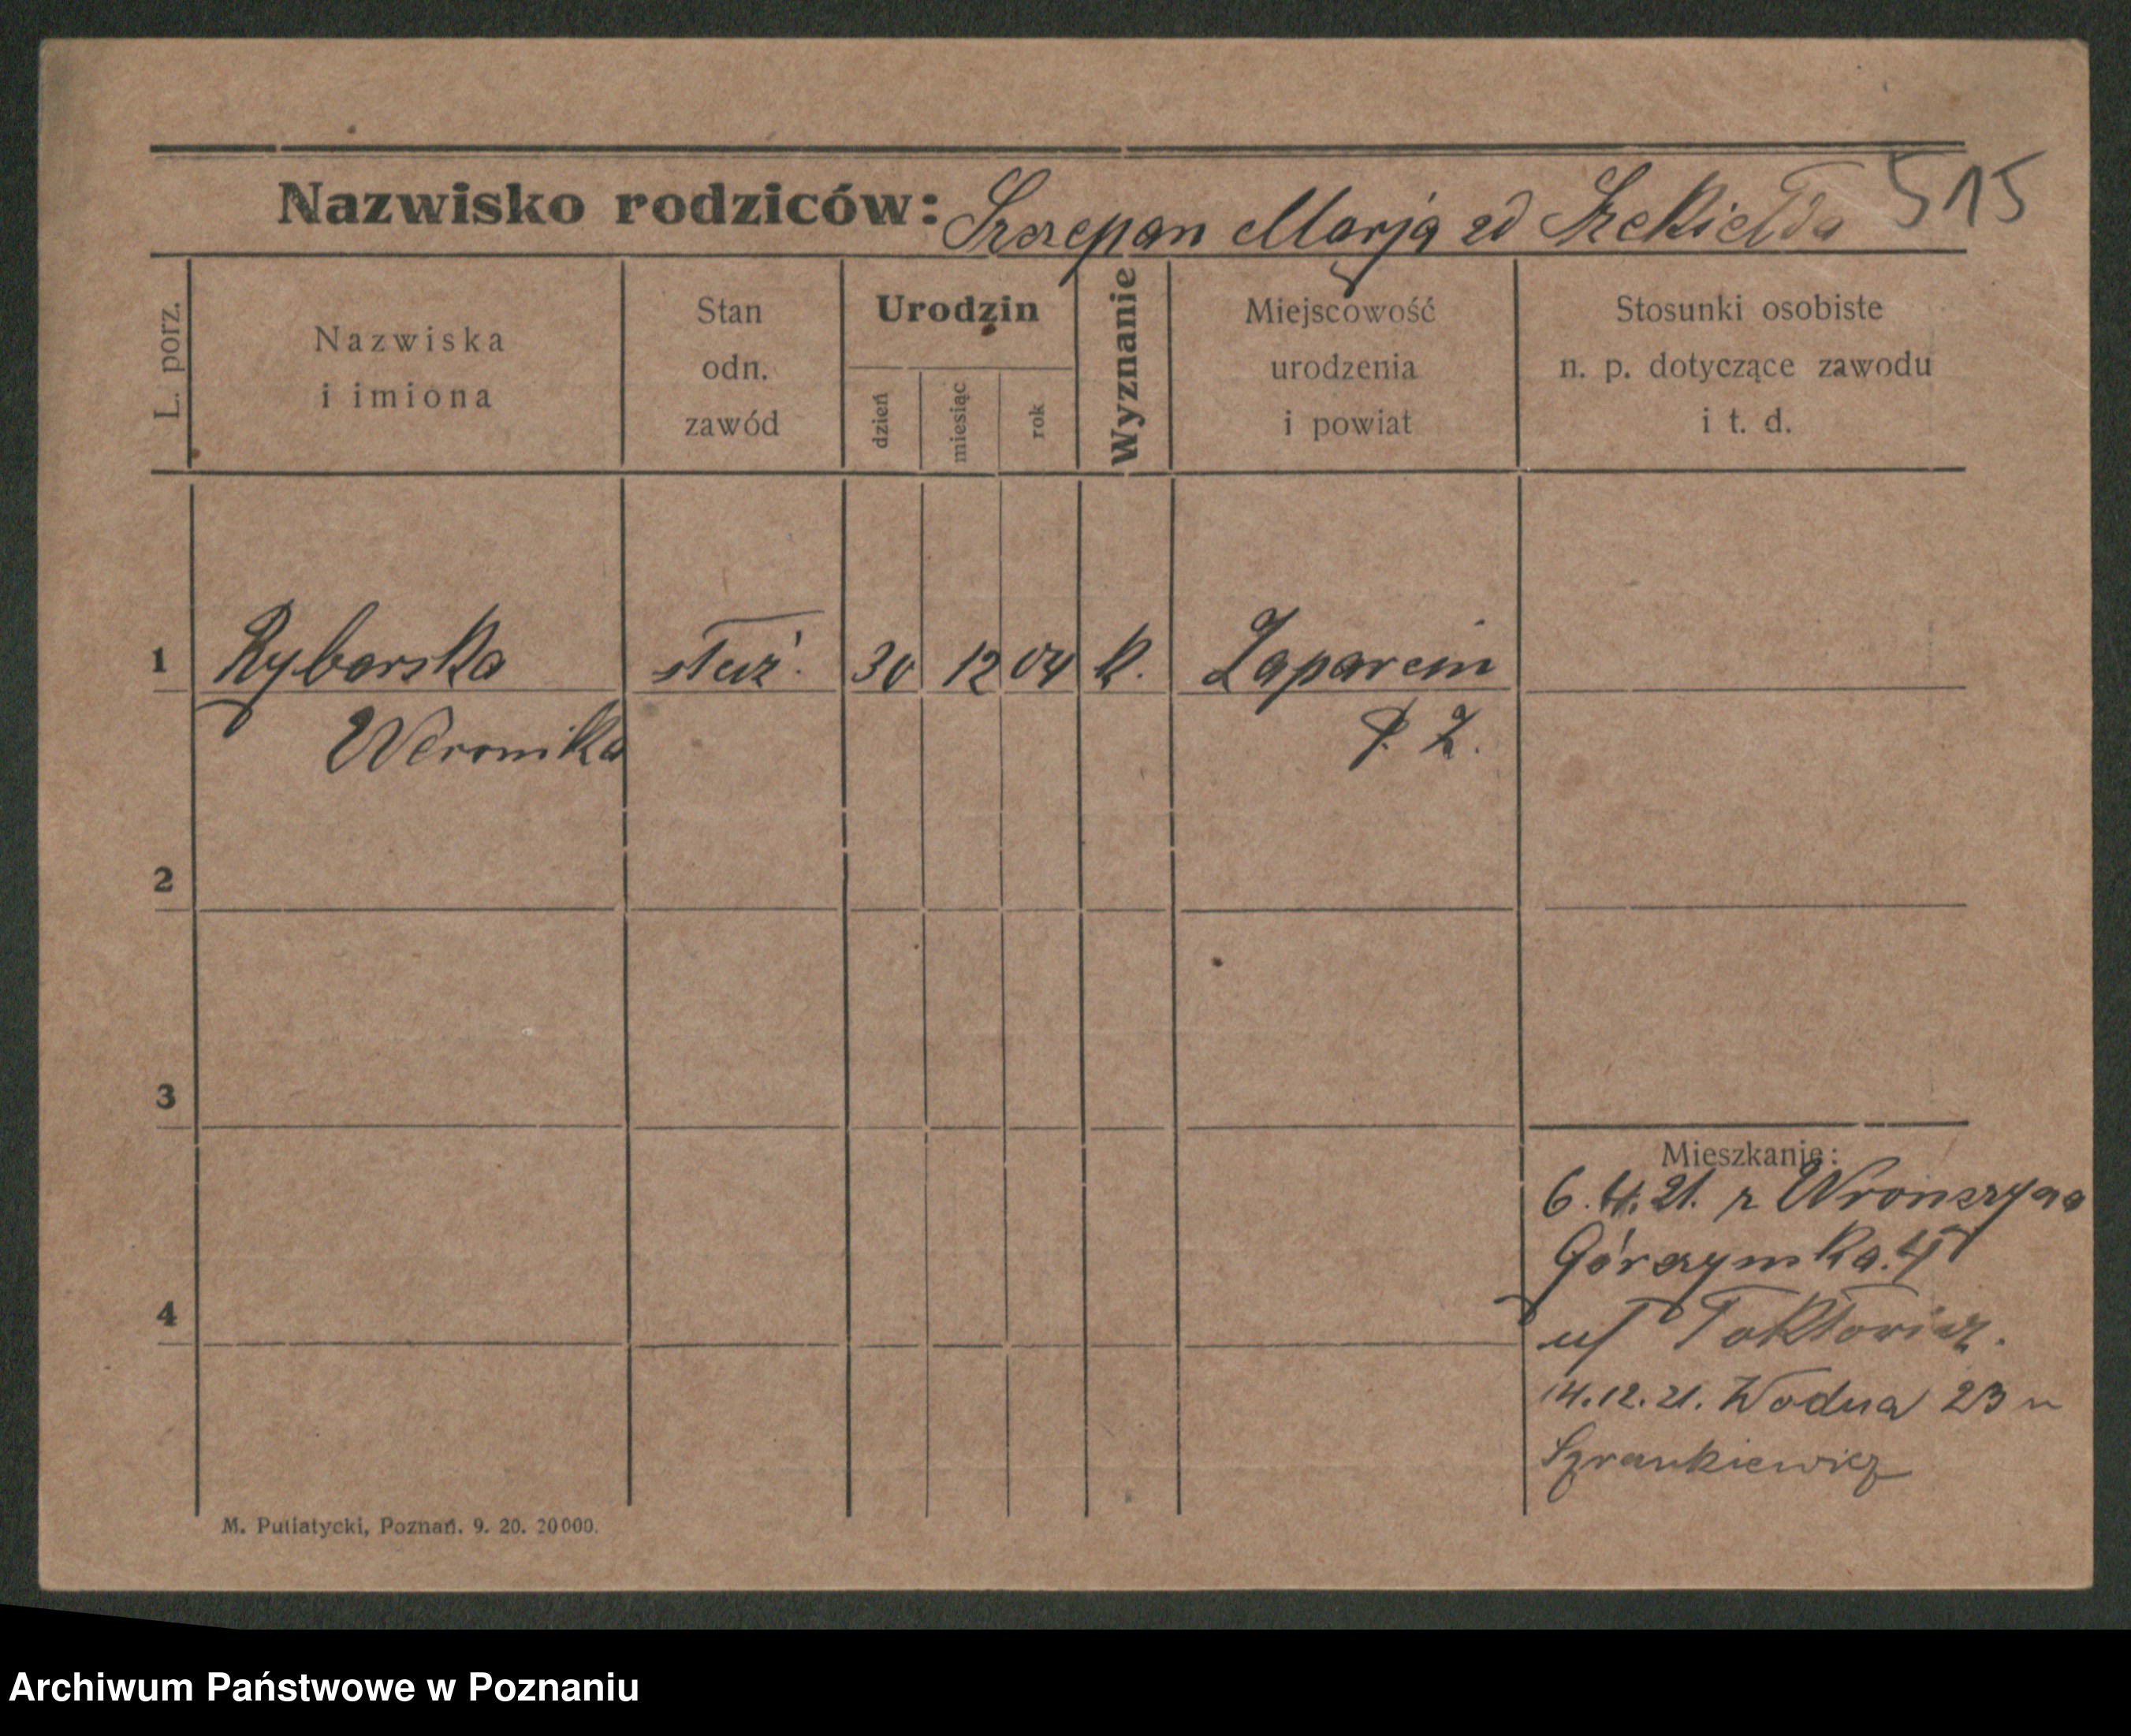 Nazwisko rodziców: Szczepan Marja zd Szekiełda 515
L. porz.
Nazwiska
i imiona
Stan
odn.
zawód
Urodzin
dzień
miesiąc
rok
Wyznanie
Miejscowość
urodzenia
i powiat
Stosunki osobiste
n. p. dotyczące zawodu
i t. d.
1 Rybarska służ. 30 12 04 k. Zaparcin
Weronika P. Z.
2
3
4
Mieszkanie:
6. 21. z Wronczyna
Górczynska.
14.12.21. Wodna 23 u
Szrankiewicz
M. Putiatycki, Poznań. 9. 20. 20000.
Archiwum Państwowe w Poznaniu